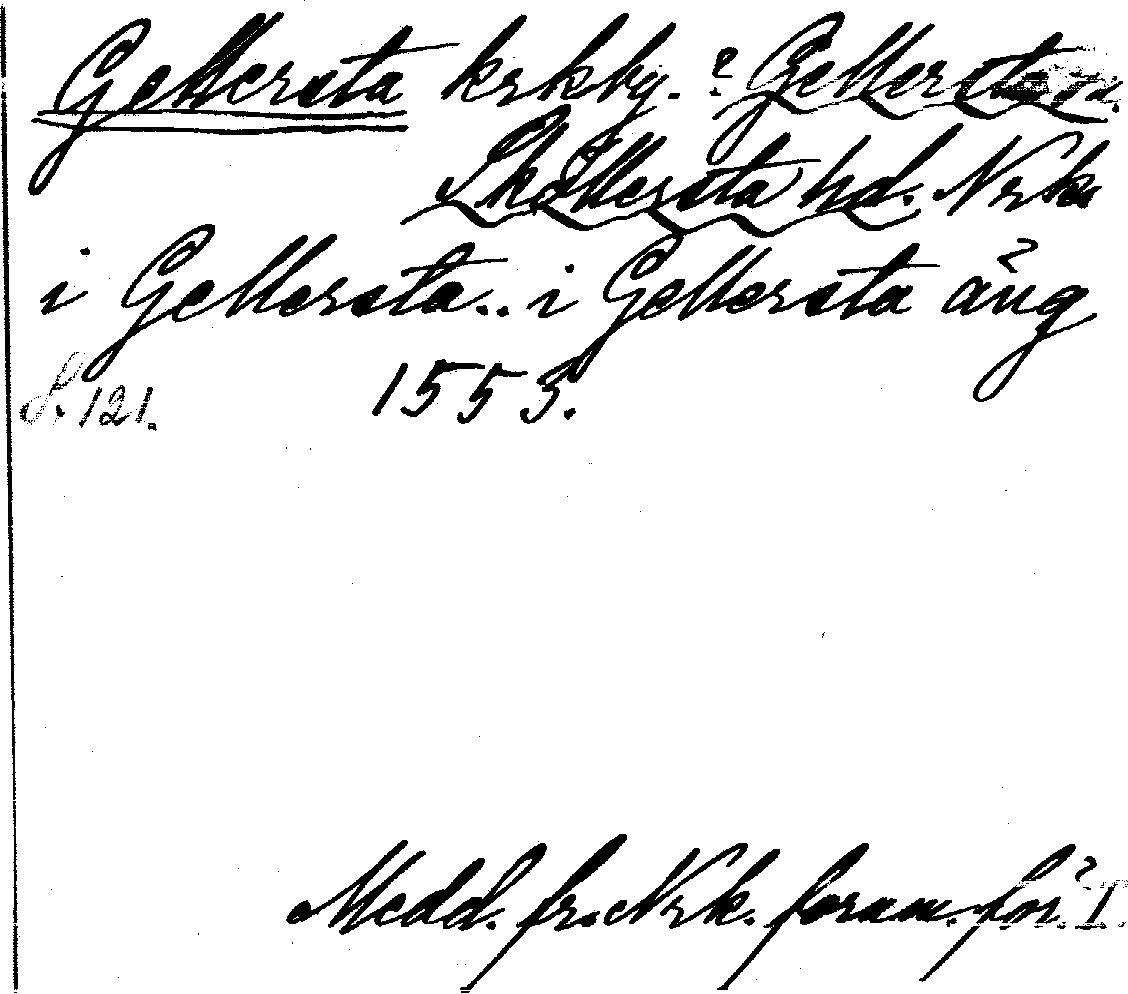 Gellersta krkby. ? Gellersta sn.
Skyllersta hd. Nrke
i Gellersta.. i Gellersta äng
S. 121. 1553.
Medd. fr. Nrk. fornm. för. I.